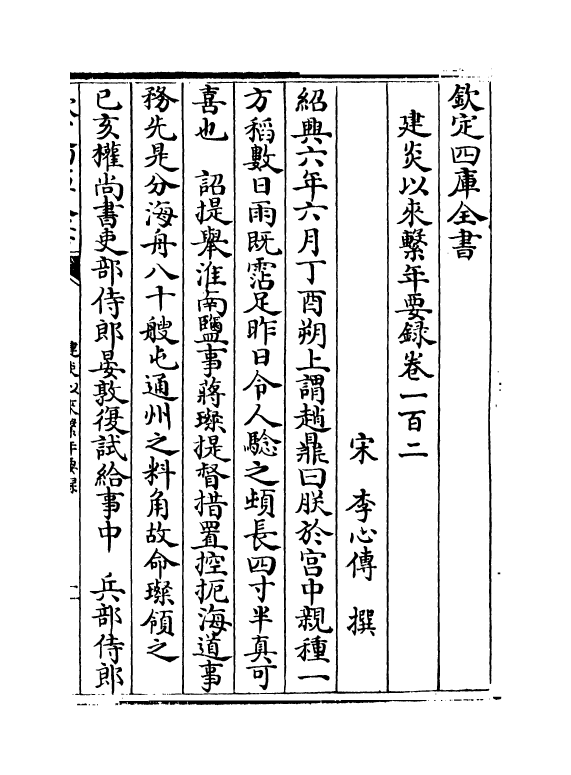 欽定四庫全書
建炎以來繫年要録卷一百二
宋　李心傳　撰
紹興六年六月丁酉朔上謂趙鼎曰朕於宫中親種一
方稻數日雨既霑足昨日令人驗之頓長四寸半真可
喜也　詔提舉淮南鹽事蔣璨提督措置控扼海道事
務先是分海舟八十艘屯通州之料角故命璨領之
已亥權尚書吏部侍郎晏敦復試給事中　兵部侍郎
建炎以來繫年要録